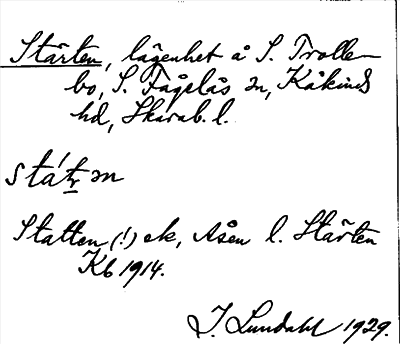 Stärten, lägenhet å S. Trolle-
bo, S. Fågelås sn, Kåkinds
hd, Skarab. l.
Statten (!) ek, Åsen l. Stärten
Kb 1914.
J. Lundahl 1929.